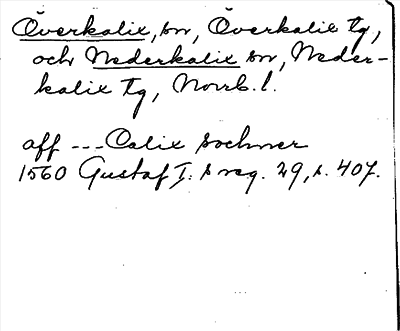 Överkalix, sn, Överkalix tg,
och Nederkalix sn, Neder-
kalix tg, Norrb. l.
aff --- Calix sochner
1560 Gustaf I:s reg. 29, s. 407.